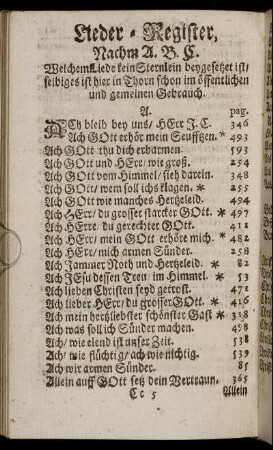 Lieder-Register,
Nachm A. B. C.
Welchem Liede kein Sternlein beygesetzet ist/
selbiges ist hier in Thorn schon im öffentlichen
und gemeinen Gebrauch.
A. pag.
ACh bleib bey uns/ HErr J. C. 346
Ach GOtt erhör mein Seufftzen. * 493
Ach GOtt thu dich erbarmen. 593
Ach GOtt und HErr/ wie groß. 254
Ach GOtt vom Himmel/ sieh darein. 348
Ach GOtt/ wem soll ichs klagen. * 255
Ach GOtt wie manches Hertzeleid. 494
Ach HErr/ du grosser starcker GOtt. * 497
Ach HErre/ du gerechter GOtt. 411
Ach HErr/ mein GOtt erhöre mich. * 482
Ach HErr/ mich armen Sünder. 258
Ach Jammer Noth und Hertzeleid. * 82
Ach JEsu dessen Treu im Himmel. * 53
Ach lieben Christen seyd getrost. 471
Ach lieber HErr/ du grosser GOtt. * 416
Ach mein hertzliebster schönster Gast * 318
Ach was soll ich Sünder machen. 498
Ach/ wie elend ist unser Zeit. 538
Ach/ wie flüchtig/ ach wie nichtig. 539
Ach wir armen Sünder. 85
Allein auff GOtt setz dein Vertraun. 365
Cc 5 Allein